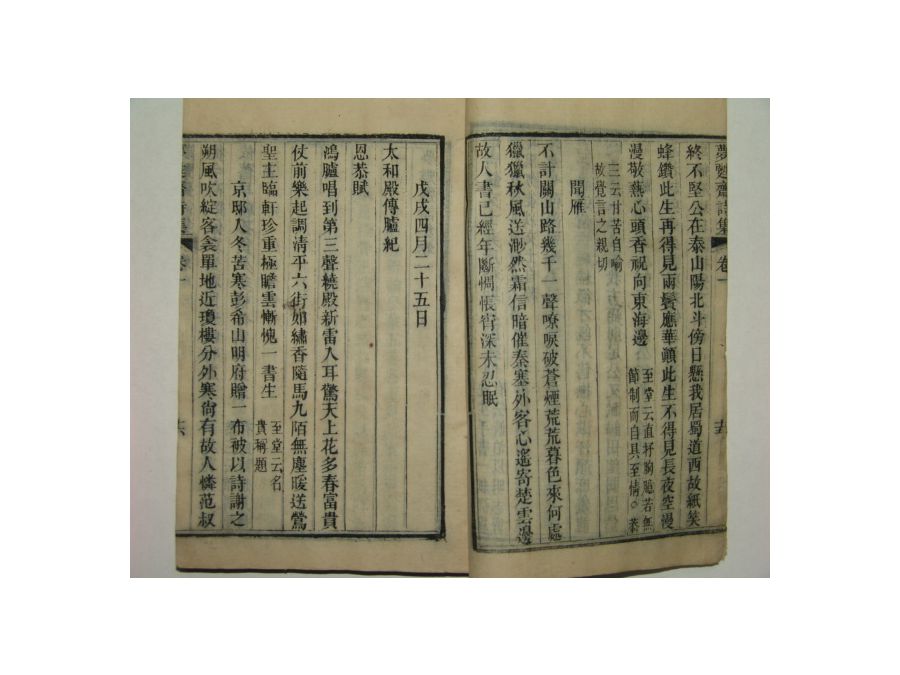 夢 齋詩集 卷一
終不堅公在泰山陽北斗傍日懸我居蜀道西故紙笑
蜂鑽此生再得見兩鬢應華顚此生不得見長夜空漫
漫敬爇心頭香祝向東海邊 至堂云直抒胸臆若無
節制而自具至情○
三云甘苦自喻
故覺言之親切
聞雁
不計關山路幾千一聲嘹唳破蒼煙荒荒暮色來何處
獵獵秋風送渺然霜信暗催秦塞外客心遙寄楚雲邊
故人書已經年斷惆悵宵深未忍眠
戊戌四月二十五日
太和殿傳臚紀
恩恭賦
鴻臚唱到第三聲繞殿新雷入耳驚天上花多春富貴
仗前樂起調清平六街如繡香隨馬九陌無塵暖送鶯
聖主臨軒珍重極瞻雲慚愧一書生 至堂云名
貴稱題
京邸人冬苦寒彭希山明府贈一布被以詩謝之
朔風吹綻客衾單地近瓊樓分外寒尙有故人憐范叔
齋詩集 卷一